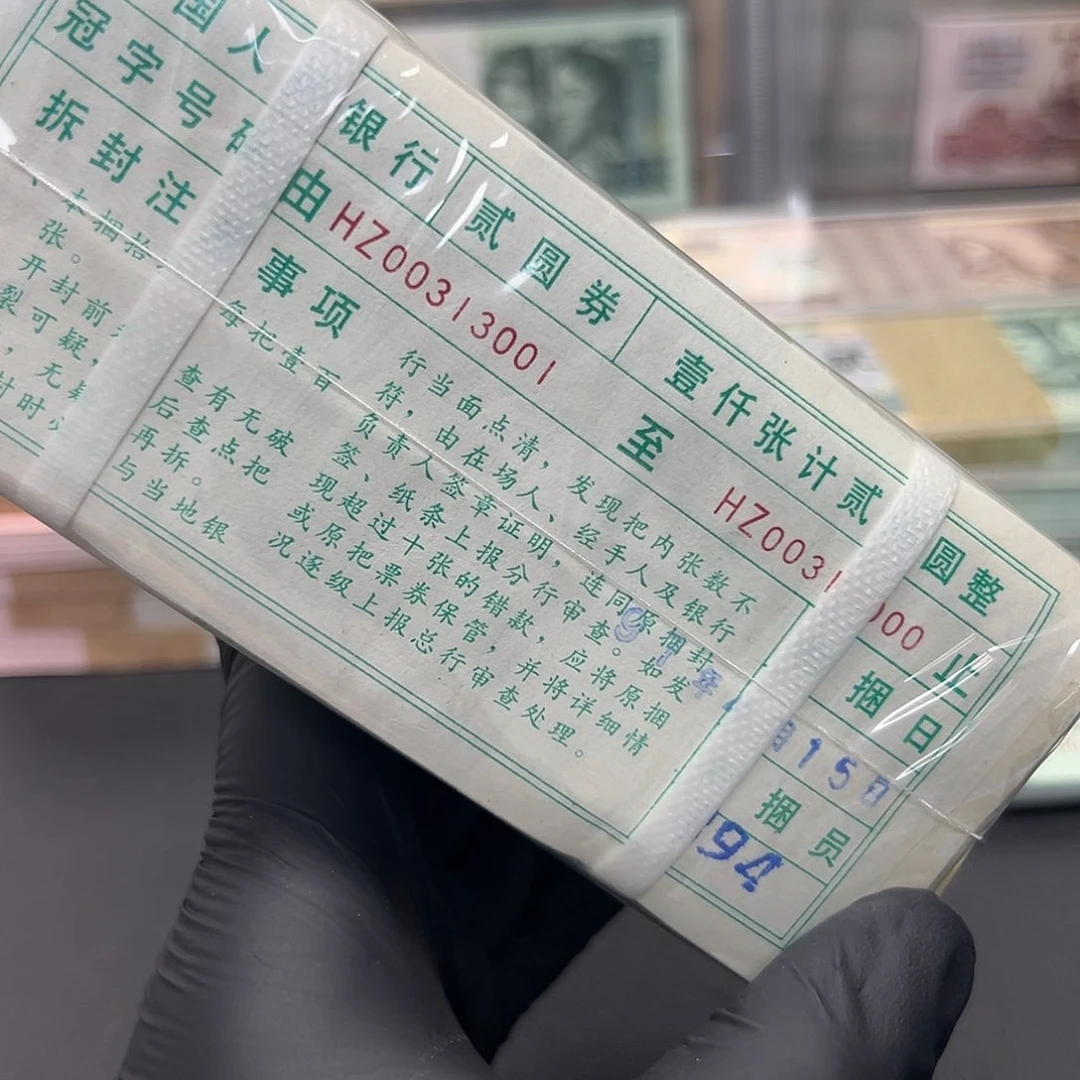 国人 银行 贰圆券 壹仟张计贰 圆整
冠字号码 由 HZ00313001 至 HZ0031 000 止
拆封注 事项 捆日
本捆拾 每把壹百
张。
开封前 查有无破
裂可疑, 后查点把
无疑 再拆。
封时 与当地银
行当面点清,发现把内张数不
符,由在场人、经手人及银行
负责人签章证明,连同原捆封
签、纸条上报分行审查。如发
现超过十张的错款,应将原捆
或原把票券保管,并将详细情
况逐级上报总行审查处理。
91年 月15日
捆员
94